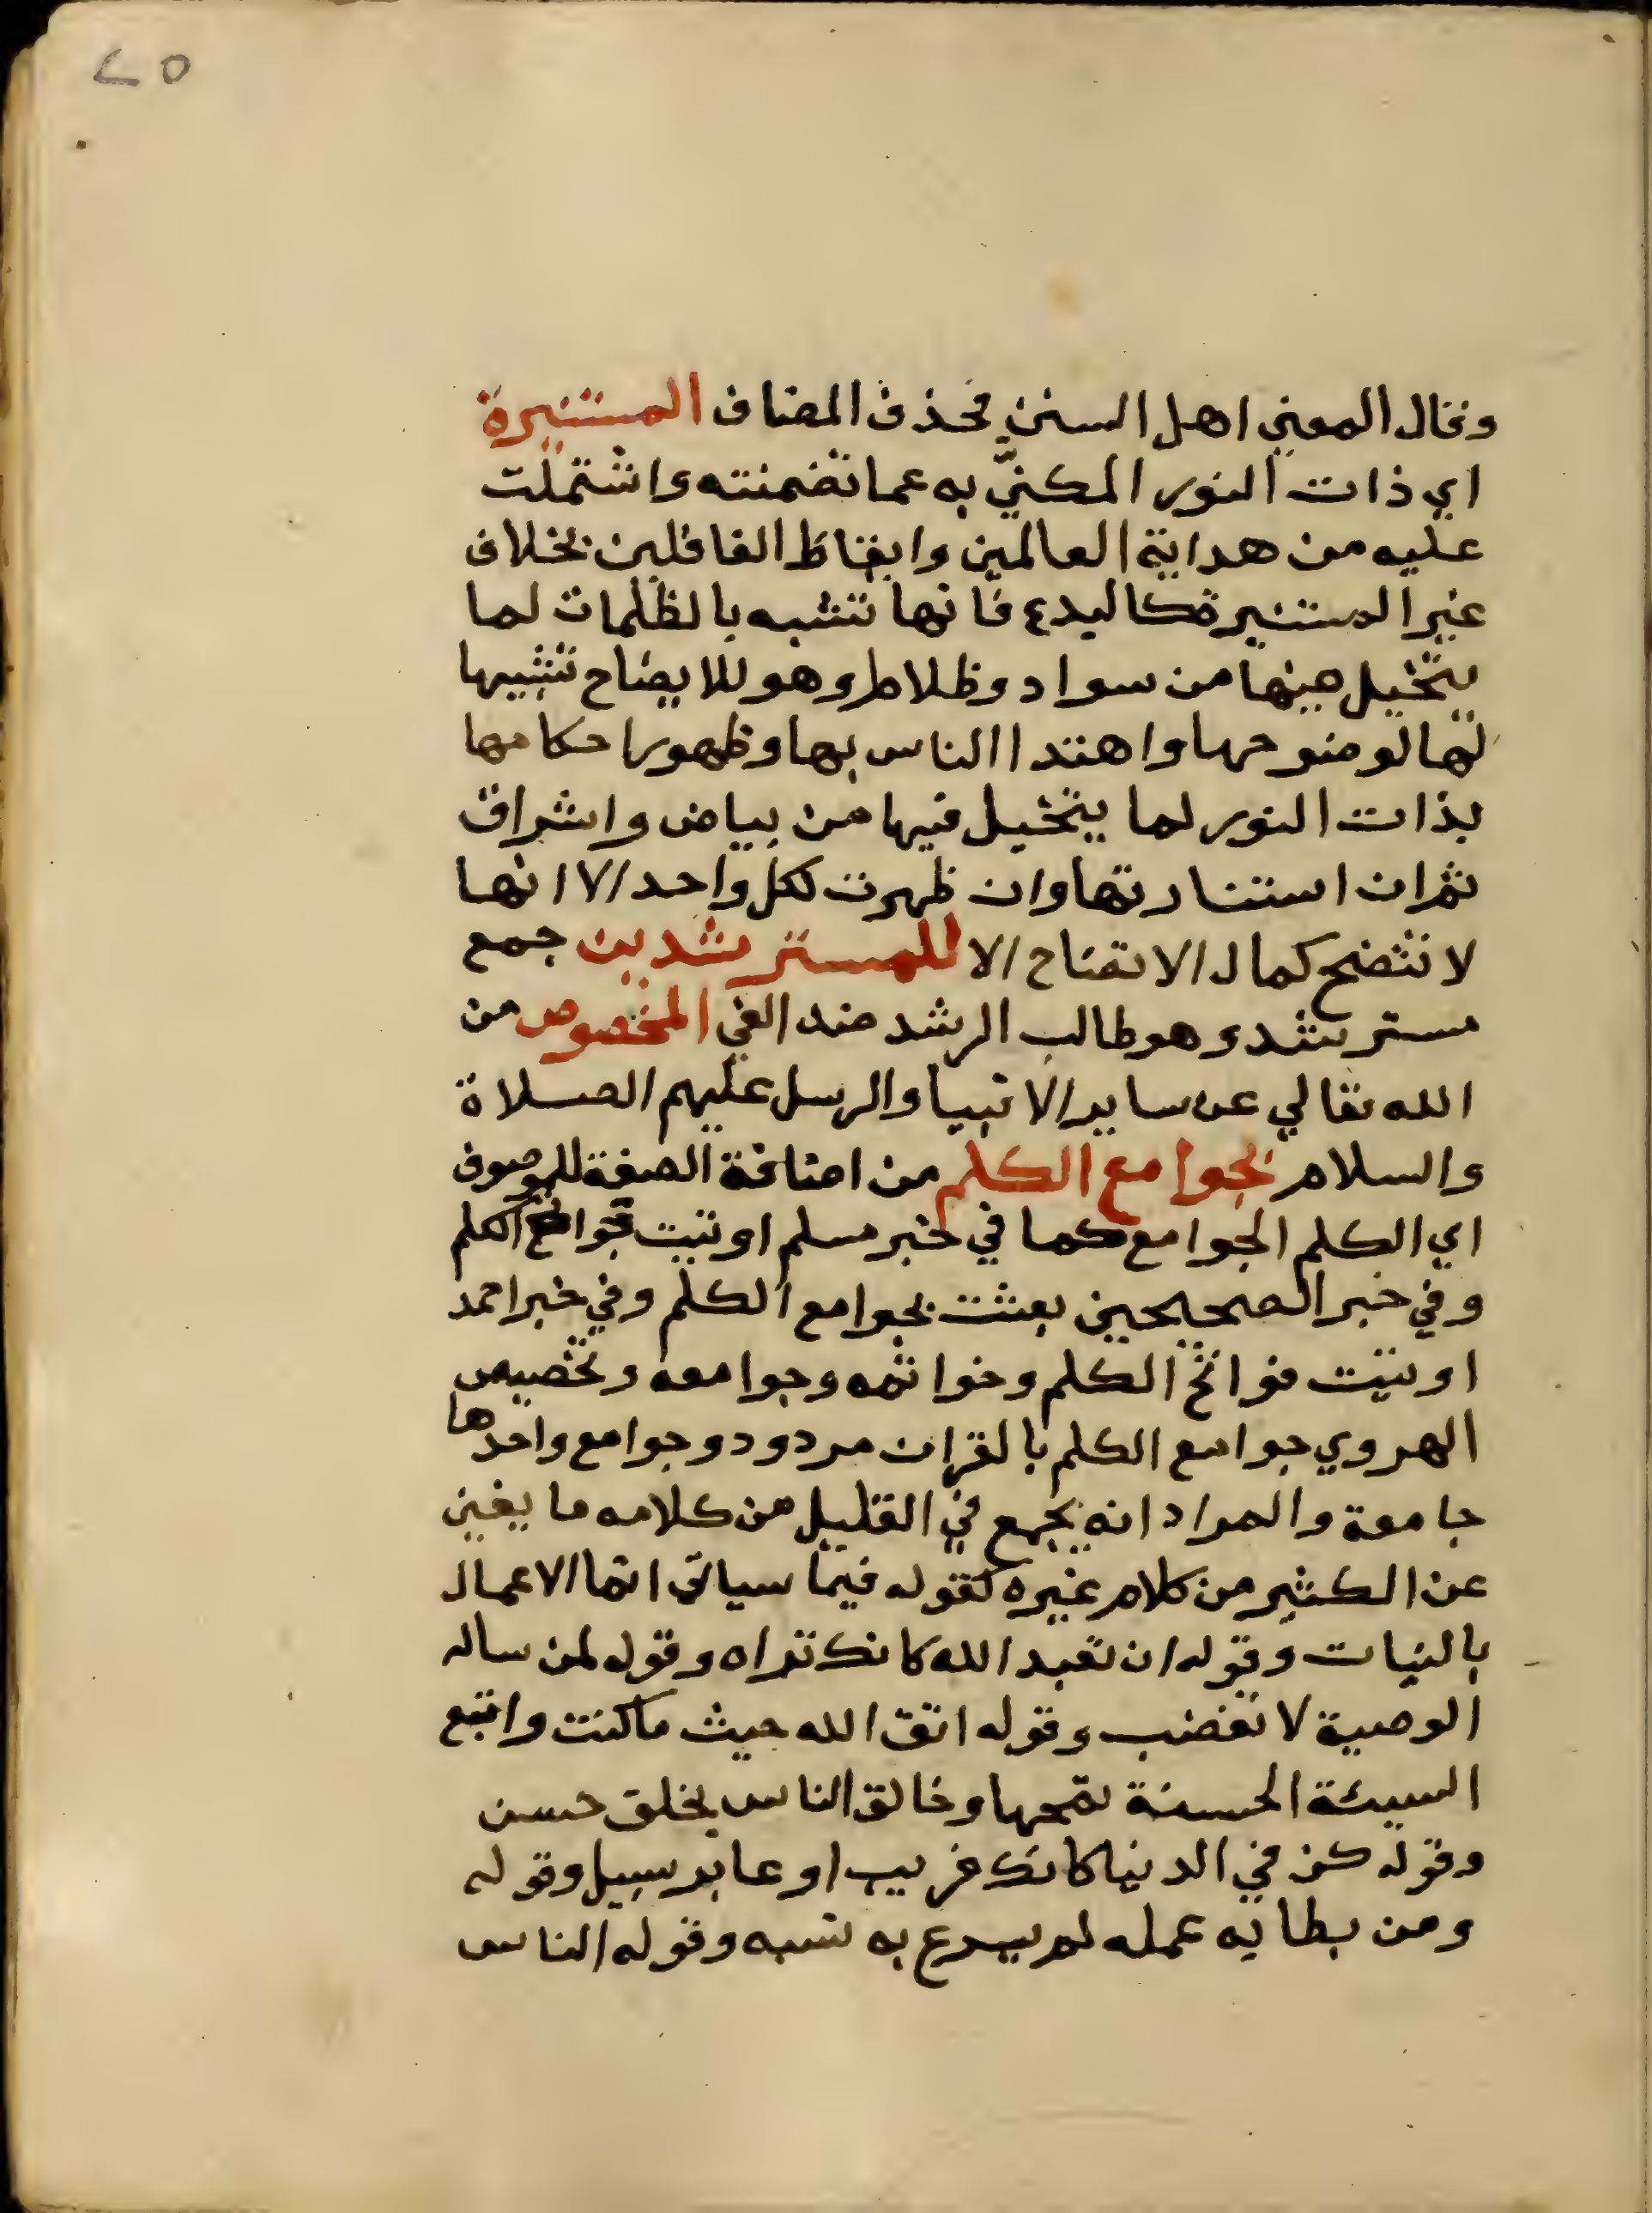 ٢٥
وقال المعني اهل السنن فحذف المضاف المستنيرة
اي ذات النور المكنيّ به عما تضمنته واشتملت
عليه من هداية العالمين وايقاظ الغافلين بخلاف
غير المستنيرة كالبدع فانها تشبه بالظلمات لما
يتخيل فيها من سواد وظلام وهو للايضاح تشبيها
لها لوضوحها واهتدا الناس بها وظهور احكامها
بذات النور لما يتخيل فيها من بياض واشراق
ثم ان استنارتها وان ظهرت لكل واحد الا انها
لا تتضح كمال الاتضاح الا للمسترشدين جمع
مسترشد وهو طالب الرشد ضد الغي المخصوص من
الله تعالي عن ساير الانبيا والرسل عليهم الصلاة
والسلام بجوامع الكلم من اضافة الصفة للموصوف
اي الكلم الجوامع كما في خبر مسلم اوتيت جوامع الكلم
وفي خبر الصحيحين بعثت بجوامع الكلم وفي خبر احمد
اوتيت فواتح الكلم وخواتمه وجوامعه وتخصيص
الهروي جوامع الكلم بالقران مردود وجوامع واحدها
جامعة والمراد انه يجمع في القليل من كلامه ما يغني
عن الكثير من كلام غيره كقوله فيما سياتي انما الاعمال
بالنيات وقوله ان تعبد الله كانك تراه وقوله لمن ساله
الوصية لا تغضب وقوله اتق الله حيث ما كنت واتبع
السيئة الحسنة تمحها وخالق الناس بخلق حسن
وقوله كن في الدنيا كانك غريب او عابر سبيل وقوله
ومن بطا به عمله لم يسرع به نسبه وقوله الناس